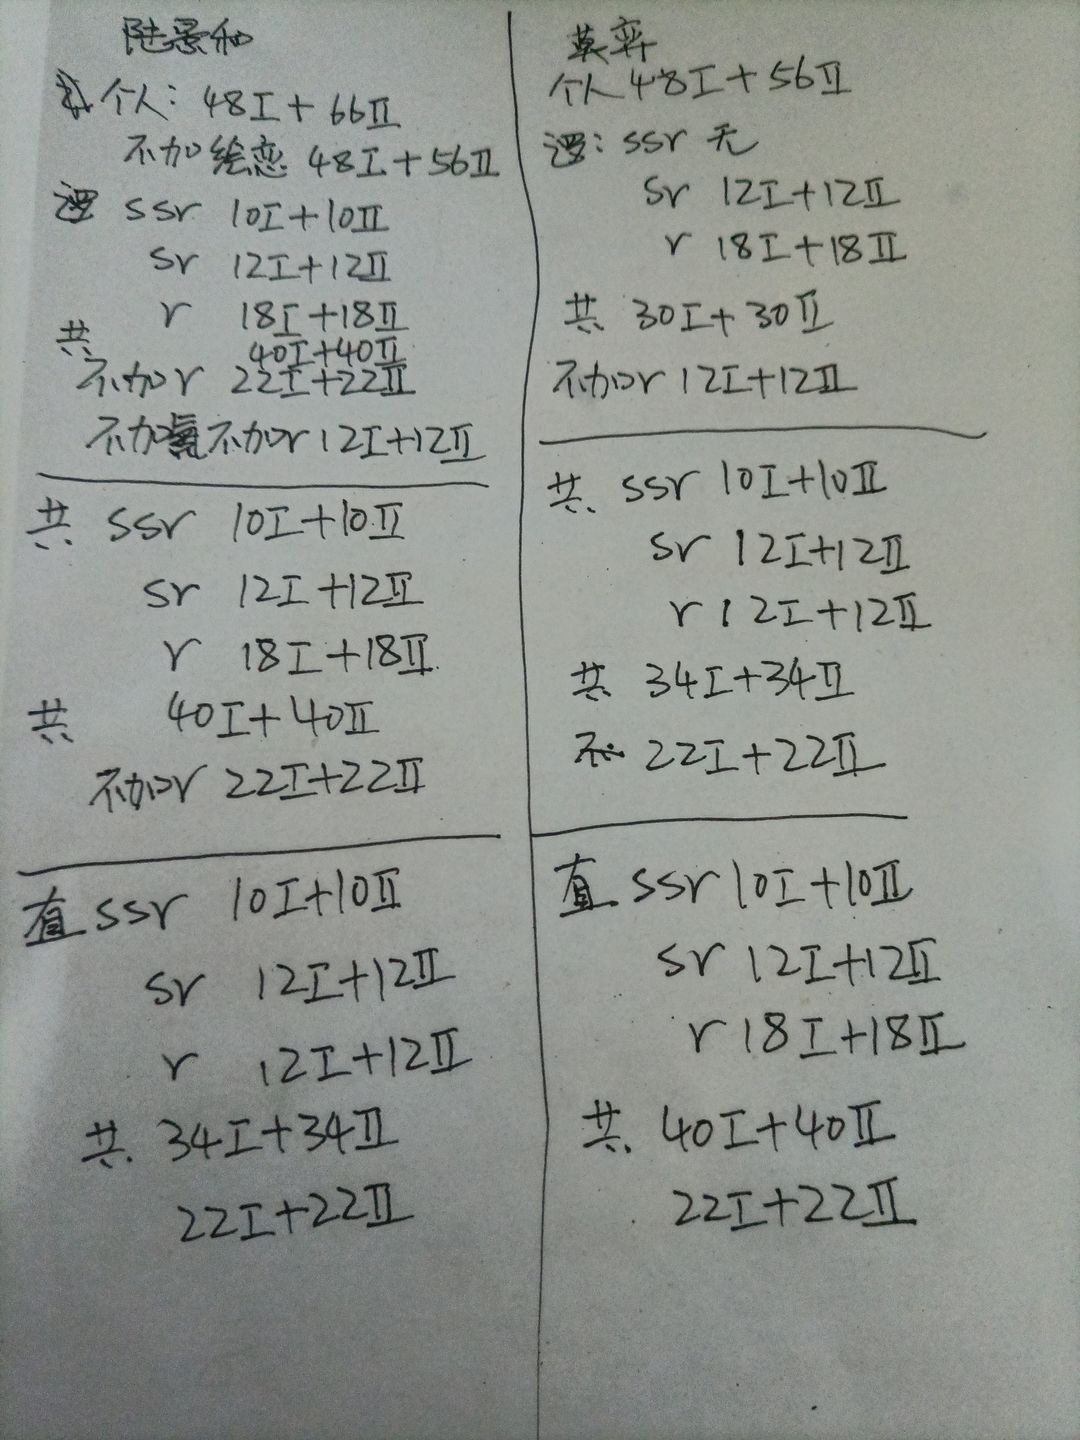 陆景和
个人：48I+66II
不加绘恋 48I+56II
逻 ssr 10I+10II
sr 12I+12II
r 18I+18II
共 40I+40II
不加r 22I+22II
不加 不加r 12I+12II
共 ssr 10I+10II
sr 12I+12II
r 18I+18II
共 40I+40II
不加r 22I+22II
直 ssr 10I+10II
sr 12I+12II
r 12I+12II
共 34I+34II
22I+22II
莫弈
个人 48I+56II
逻：ssr 无
sr 12I+12II
r 18I+18II
共 30I+30II
不加r 12I+12II
共 ssr 10I+10II
sr 12I+12II
r 12I+12II
共 34I+34II
不 22I+22II
直 ssr 10I+10II
sr 12I+12II
r 18I+18II
共 40I+40II
22I+22II